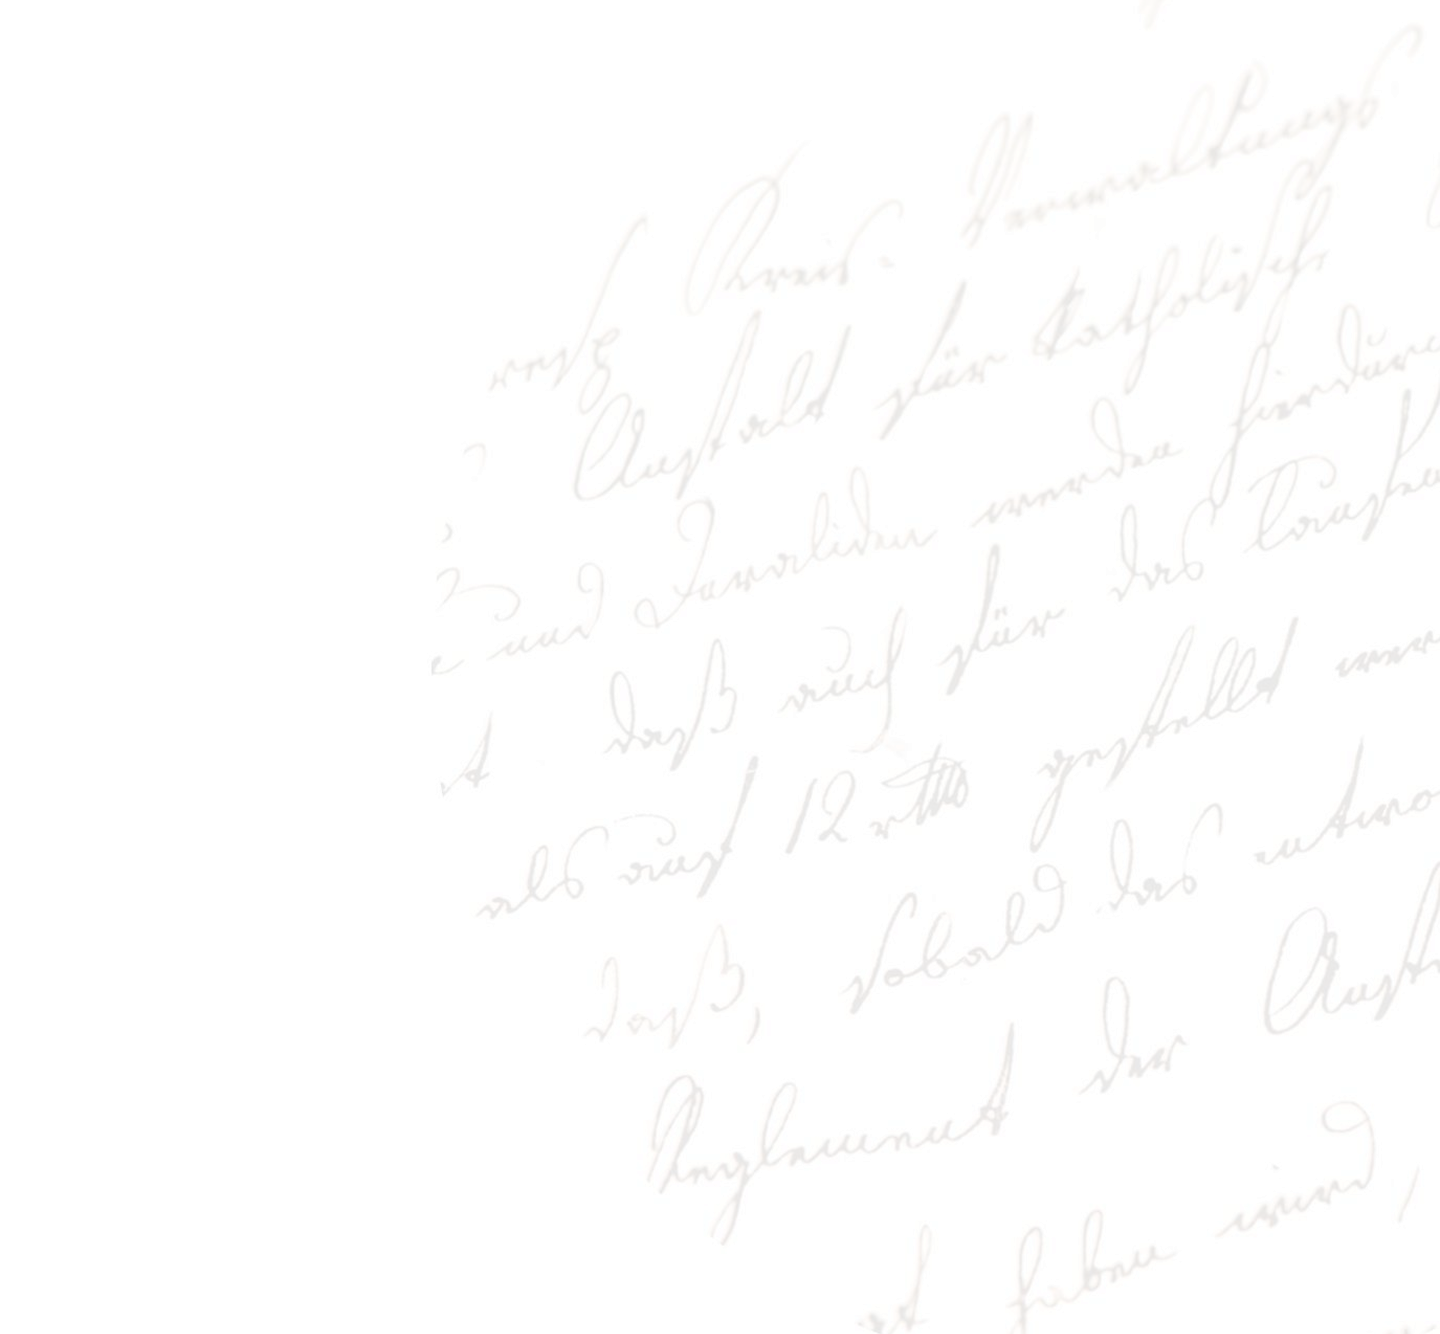 Kreis-Verwaltungs
Anstalt für katholische
und Invaliden werden hierdurch
daß auch für das Laufen
als auf 12 rthlr gestellt wer
daß, sobald das entwor
Reglement der Anst
haben wird,